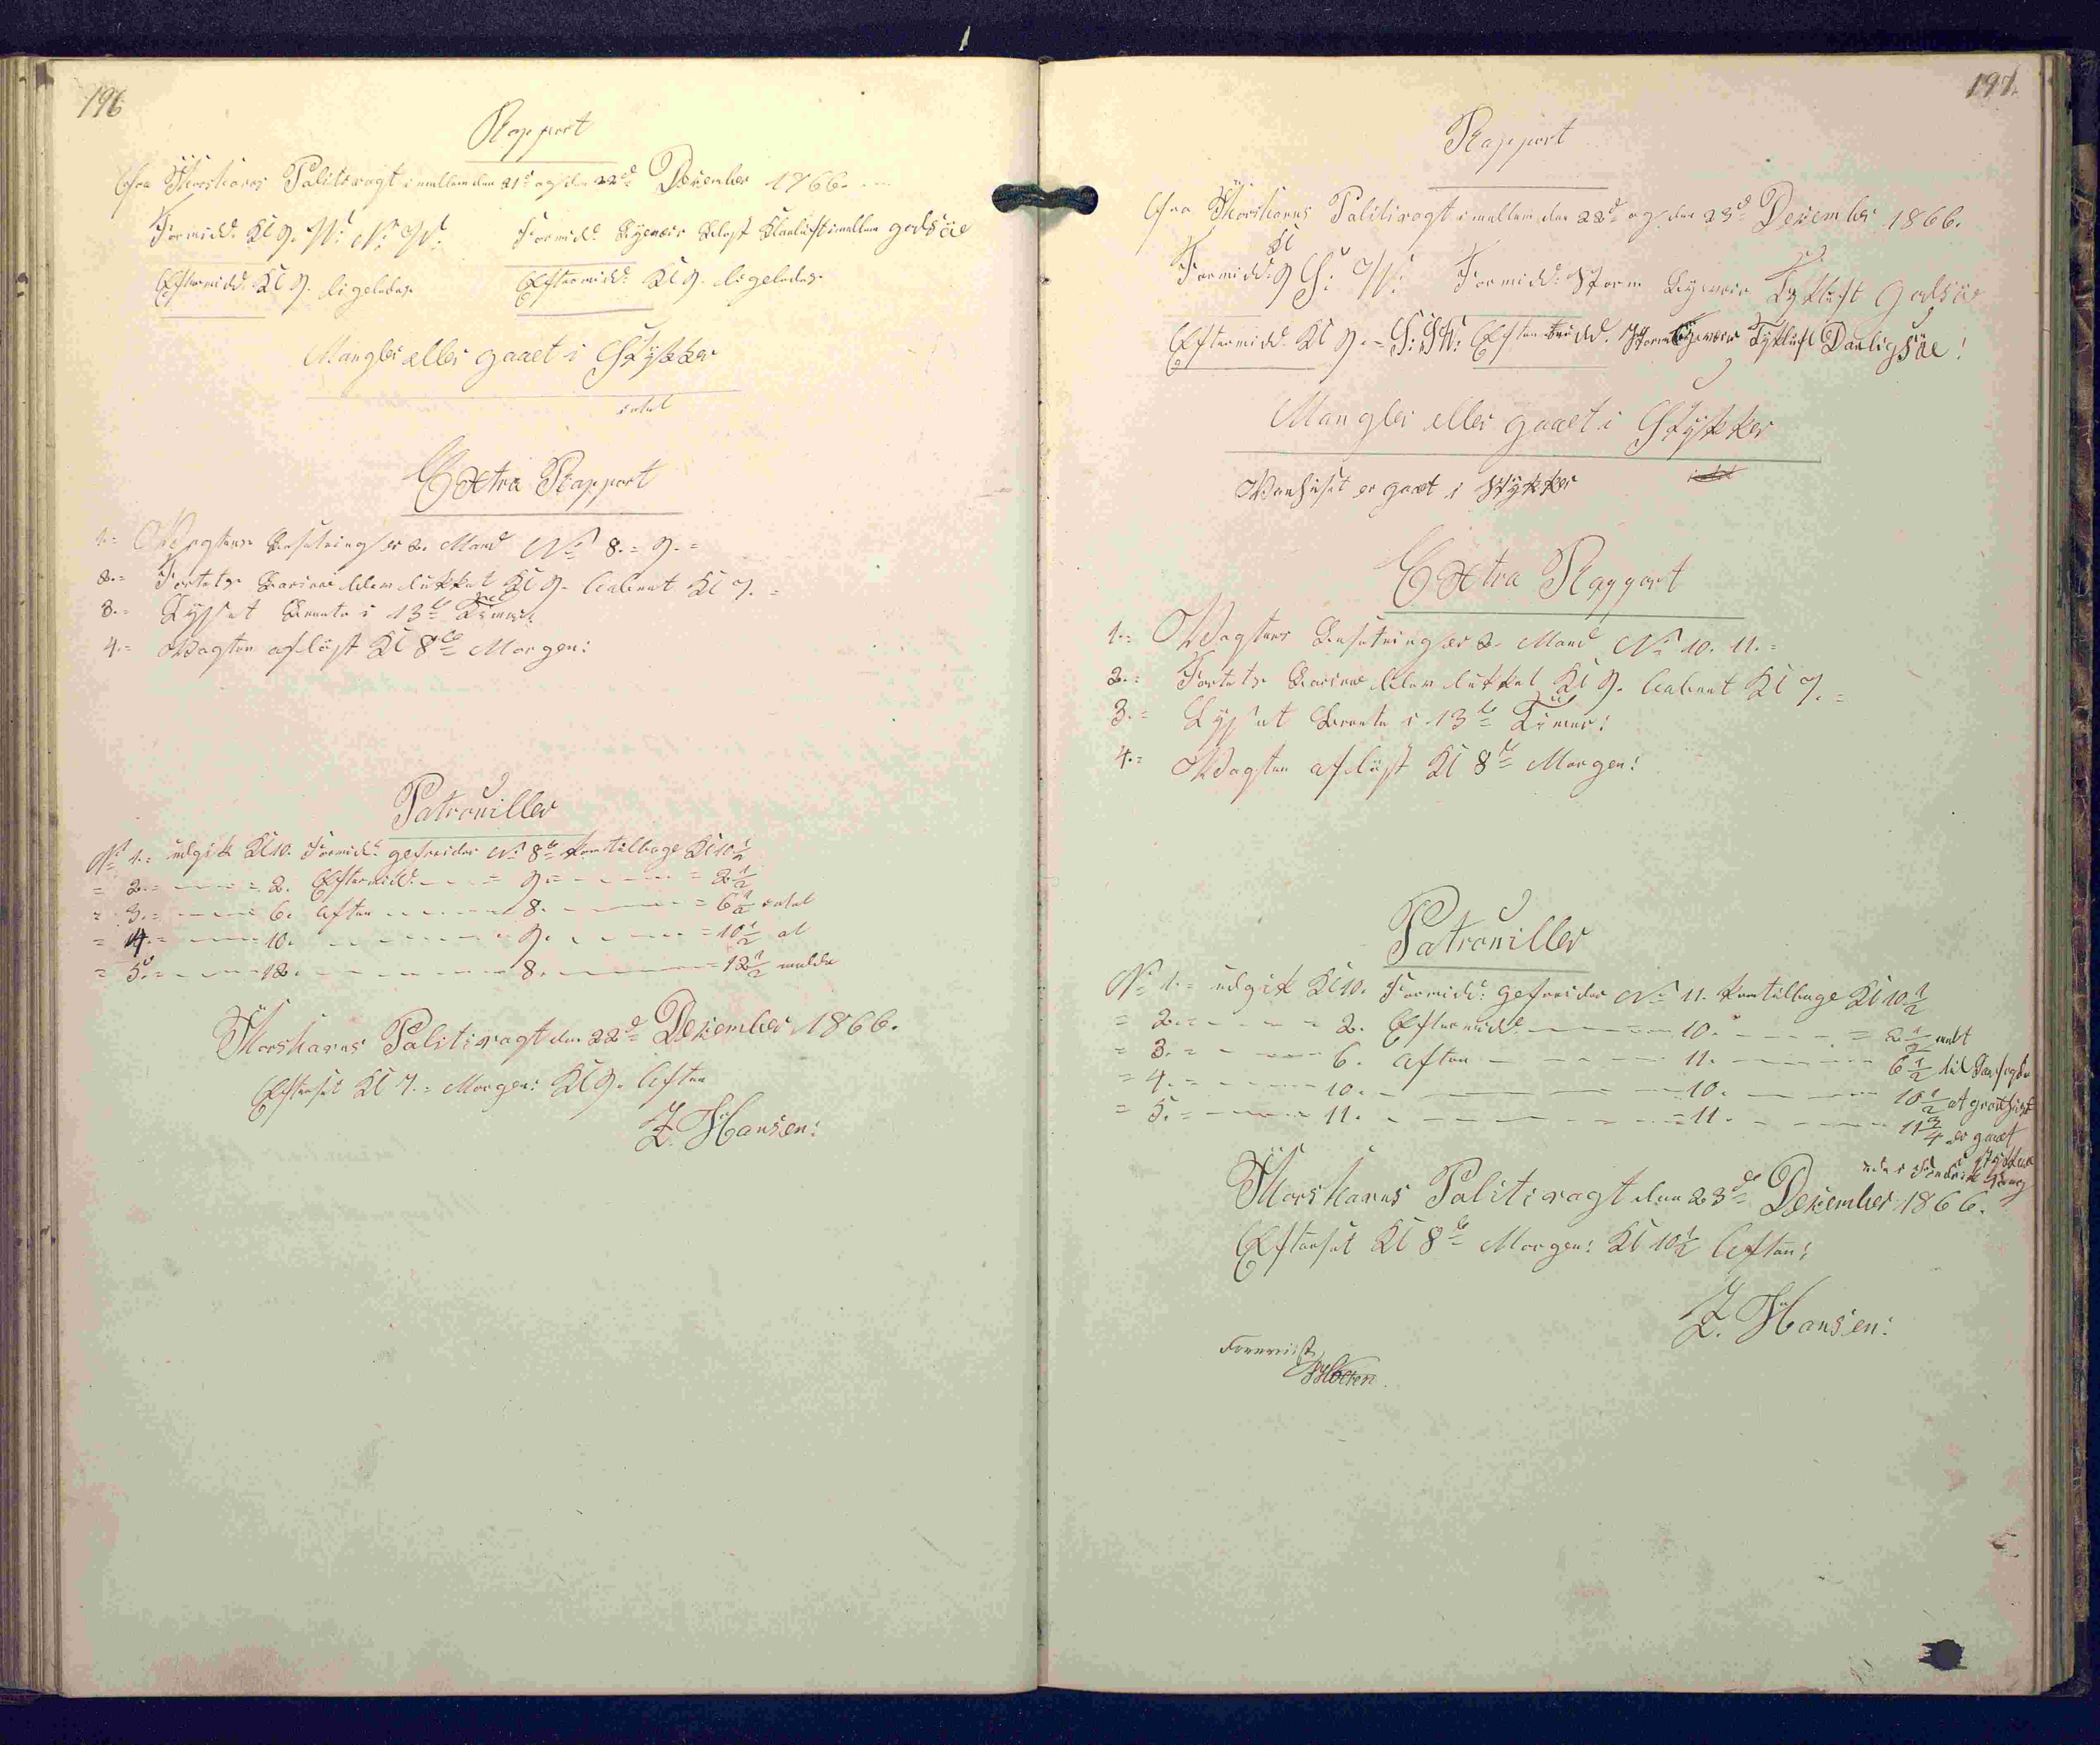 196
Rapport
fra Thorshavns Politivagt imellem den 21d og den 22d December 1866.
Formidd: Kl 9. W: N: W: Formidd: Bygeveir Klarluft imellem godsöe
Eftermidd: Kl 9. ligeledes Eftermidd: Kl 9. ligeledes
Mangler eller gaaet i Stykker
intet
Extra Rapport
1.= Vagtens Besætning er 2. Mand No 8. = 9. =
2.= Fortets Barriere blev lukket Kl 9. aabnet Kl 7. =
3.= Lyset brente i 13de Timer:
4.= Vagten aflöst Kl 8de Morgen:
Patrouiller
No 1.= udgik Kl 10. Formidd: gefreider No 8de kom tilbage Kl 10½
= 2.= = 2. Eftermidd: = 9. = = 2½
= 3.= 6. Aften 8. = 6½ intet
= 4.= 10. 9. = 10½ at
= 5.= 12. 8. = 12½ melde
Thorshavns Politivagt den 22d December 1866.
Efterset Kl 7.= Morgen: Kl 9. Aften
Z. Hansen:
197
Rapport
fra Thorshavns Politivagt imellem den 22d og den 23d December 1866.
Formidd: Kl 9 S: W: Formidd: Storm Bygeveir Tykluft godsöe
Eftermidd: Kl 9.= S: W: Eftermidd. Storm Bygeveir Tykluft Daaligsöe!
Mangler eller gaaet i Stykker
er gaaet i Stykker intet
Extra Rapport
1.= Vagtens Besætning er 2. Mand No 10. 11. =
2.= Fortets Barriere blev lukket Kl 9. aabnet Kl 7. =
3.= Lyset brente i 13de Timer:
4.= Vagten aflöst Kl 8de Morgen:
Patrouiller
No 1.= udgik Kl 10. Formidd: gefreider No 11. kom tilbage Kl 10½
= 2.= 2. Eftermidd: 10. = 2½
= 3.= 6. Aften 11. 6½
= 4.= 10. 10. 10½ at
= 5.= 11. = 11. 11¾ er gaaet
i Stykker
Thorshavns Politivagt den 23de December 1866.
Efterset Kl 8de Morgen: Kl 10½ Aften:
Z. Hansen:
Foreviist